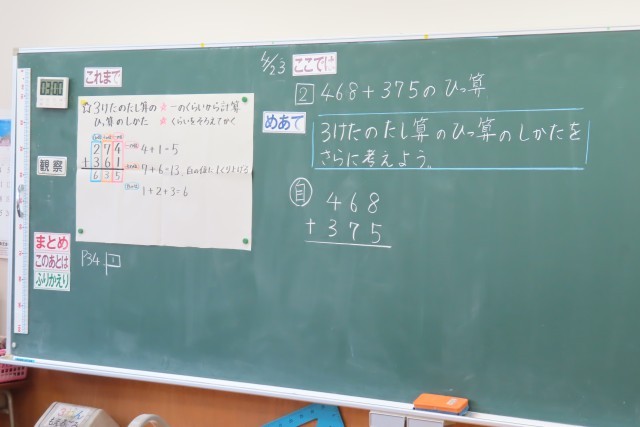 これまで
03:00
☆3けたのたし算の ★一のくらいから計算
ひっ算のしかた ★くらいをそろえてかく
274
+361
635
4+1=5
7+6=13
1+2+3=6
観察
まとめ
このあとは
ふりかえり
P34 1
4/23 ここでは
2 468+375のひっ算
めあて
3けたのたし算のひっ算のしかたを
さらに考えよう。
自
468
+375